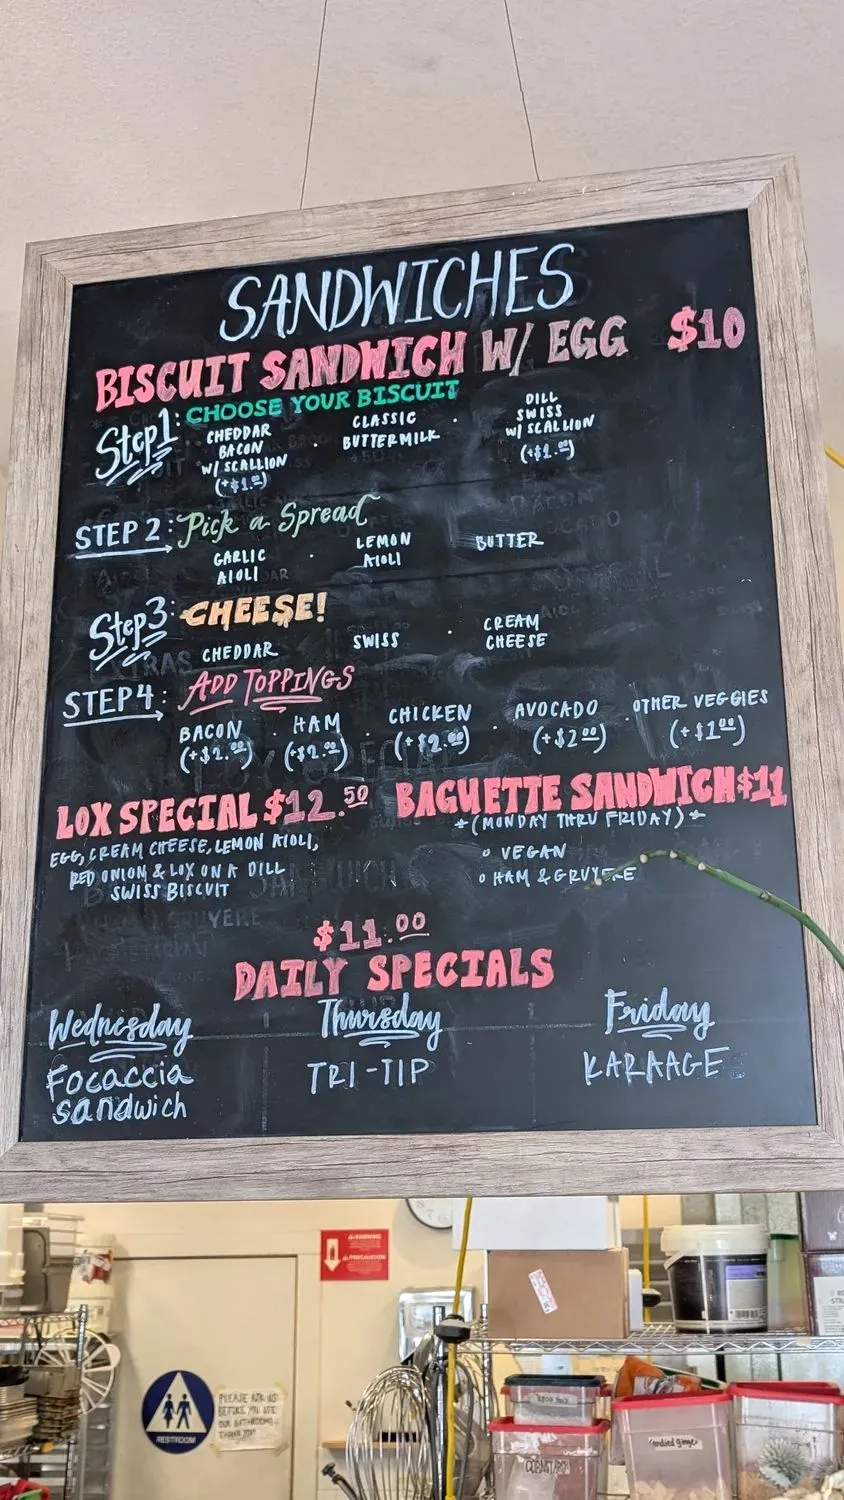 SANDWICHES
BISCUIT SANDWICH W/ EGG $10
Step1: CHOOSE YOUR BISCUIT
CHEDDAR
BACON
W/ SCALLION
(+$1.00)
·
CLASSIC
BUTTERMILK
·
DILL
SWISS
W/ SCALLION
(+$1.00)
STEP 2: Pick a Spread
GARLIC
AIOLI
·
LEMON
AIOLI
BUTTER
Step3: CHEESE!
CHEDDAR
SWISS
·
CREAM
CHEESE
STEP4: ADD TOPPINGS
BACON
(+$2.00)
·
HAM
(+$2.00)
·
CHICKEN
(+$2.00)
·
AVOCADO
(+$2.00)
·
OTHER VEGGIES
(+$1.00)
LOX SPECIAL $12.50
EGG, CREAM CHEESE, LEMON AIOLI,
RED ONION & LOX ON A DILL
SWISS BISCUIT
BAGUETTE SANDWICH $11
*(MONDAY THRU FRIDAY)*
○ VEGAN
○ HAM & GRUYERE
$11.00
DAILY SPECIALS
Wednesday
Focaccia
sandwich
Thursday
TRI-TIP
Friday
KARAAGE
RESTROOM
PLEASE ASK US
BEFORE YOU USE
OUR BATHROOM
THANK YOU
CORNSTARCH
candied ginger